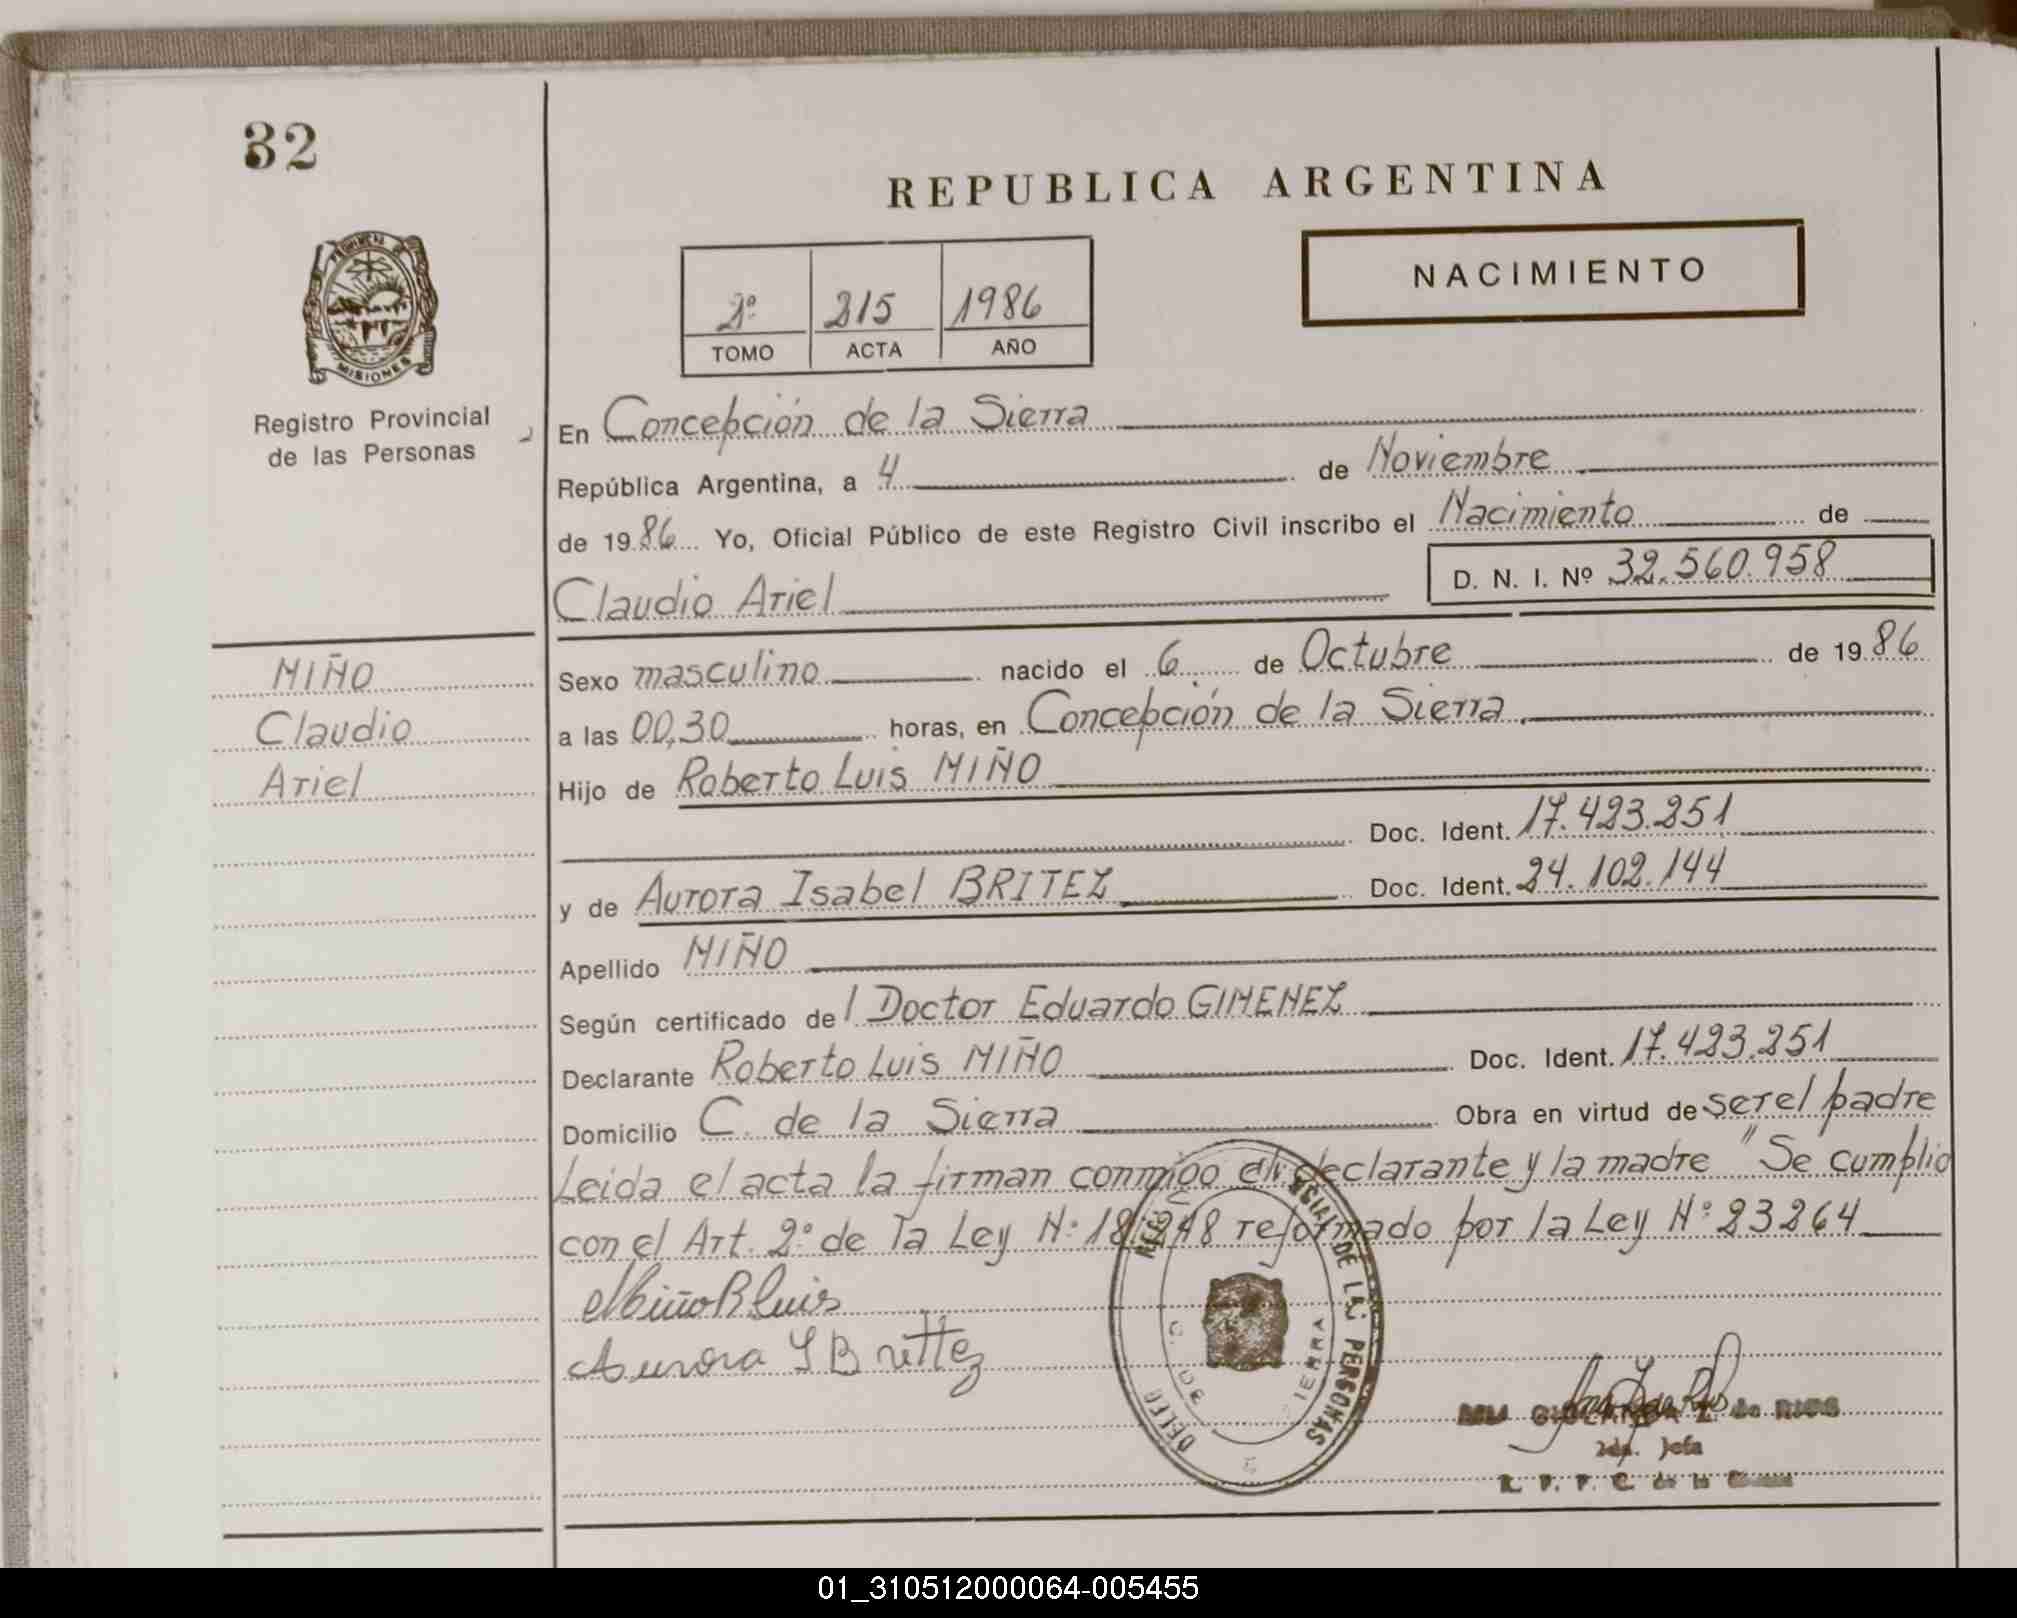 32
REPUBLICA ARGENTINA
NACIMIENTO
2º 215 1986
TOMO ACTA AÑO
PROVINCIA DE
MISIONES
Registro Provincial
de las Personas
En Concepción de la Sierra
República Argentina, a 4 de Noviembre
de 1986 Yo, Oficial Público de este Registro Civil inscribo el Nacimiento de
Claudio Ariel D. N. I. Nº 32.560.958
MIÑO
Claudio
Ariel
Sexo masculino nacido el 6 de Octubre de 1986
a las 00,30 horas, en Concepción de la Sierra
Hijo de Roberto Luis MIÑO
Doc. Ident. 17.423.251
y de Aurora Isabel BRITEZ Doc. Ident. 24.102.144
Apellido MIÑO
Según certificado del Doctor Eduardo GIMENEZ
Declarante Roberto Luis MIÑO Doc. Ident. 17.423.251
Domicilio C. de la Sierra Obra en virtud de ser el padre
Leida el acta la firman conmigo el declarante y la madre "Se cumplio
con el Art. 2º de la Ley Nº 18.248 reformado por la Ley Nº 23264
Miño R Luis
Aurora I Brittez
DE LAS PERSONAS
de RIOS
2da. Jefa
R. P. P. C. de la Sierra
01_310512000064-005455